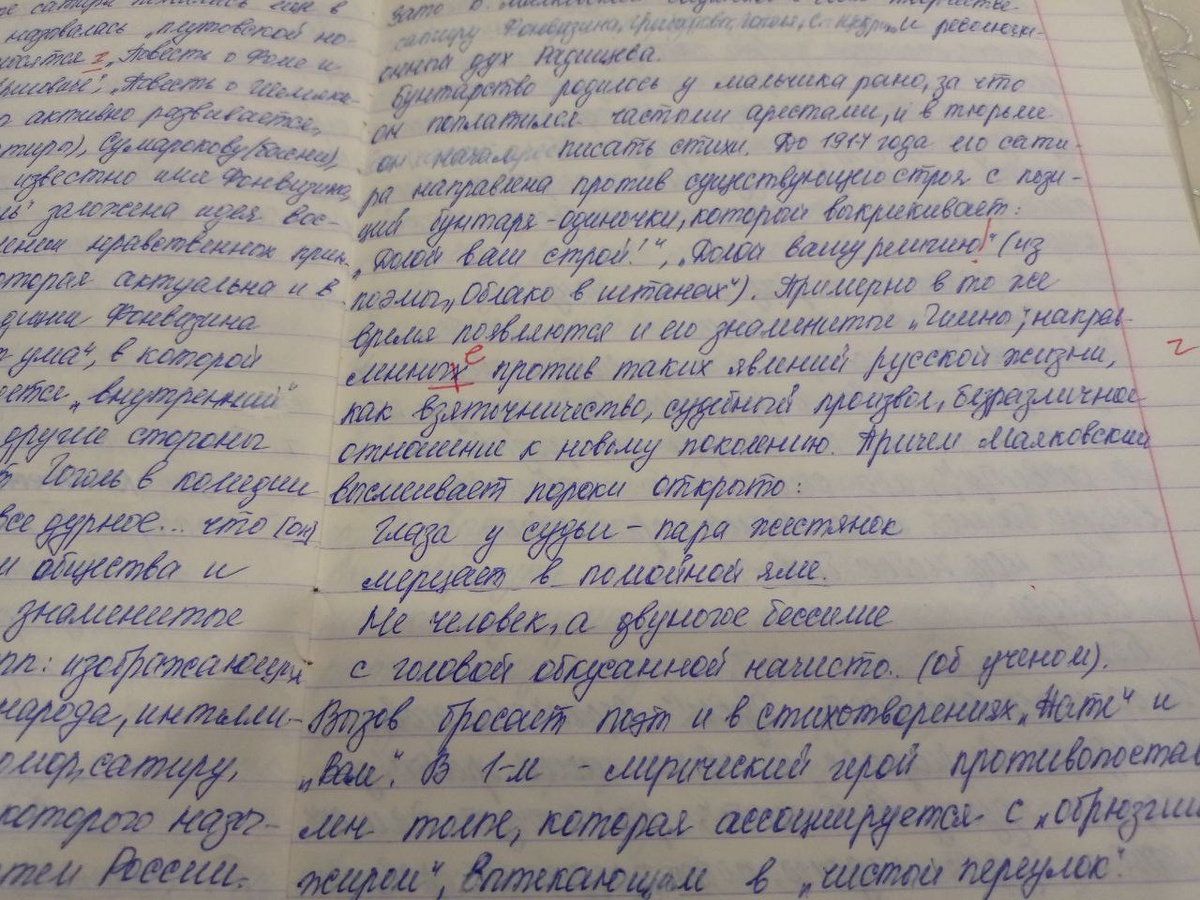 е сатира появились еще в
называлась „плутовской но-
„Повесть о Фоме и
„Повесть о Шемяке-
о активно развивается,
Сумарокову (басни),
известно имя Фонвизина,
заложена идея вос-
нравственных прин-
оторая актуальна и в
Фонвизина
ума“, в которой
ется „внутренний“
другие стороны
Гоголь в комедии
все дурное... что (он)
и общества и
знаменитое
изображающия
народа, интелли-
юмор, сатиру,
которого назы-
тем России.
зато в
сатиру Фонвизина, Грибоедова, Гоголя, С-Щедрина и революци-
онный дух Радищева.
Бунтарство родилось у мальчика рано, за что
он поплатился частыми арестами, и в тюрьме
он писать стихи. До 1917 года его сати-
ра направлена против существующего строя с пози-
ций бунтаря-одиночки, который выкрикивает:
„Долой ваш строй!“, „Долой вашу религию!“ (из
поэмы „Облако в штанах“). Примерно в то же
время появляются и его знаменитые „Гимны“, направ-
ленные против таких явлений русской жизни,
как взяточничество, судебный произвол, безразличное
отношение к новому поколению. Причем Маяковский
высмеивает пороки открыто:
Глаза у судьи – пара жестянок
мерцает в помойной яме.
Не человек, а двуногое бессилие
с головой обкусанной начисто.. (об ученом).
Вызов бросает поэт и в стихотворениях „Нате“ и
„Вам“. В 1-м – лирический герой противопостав
лен толпе, которая ассоциируется с „обрюзгшим
жиром“, вытекающим в „чистый переулок“.
г